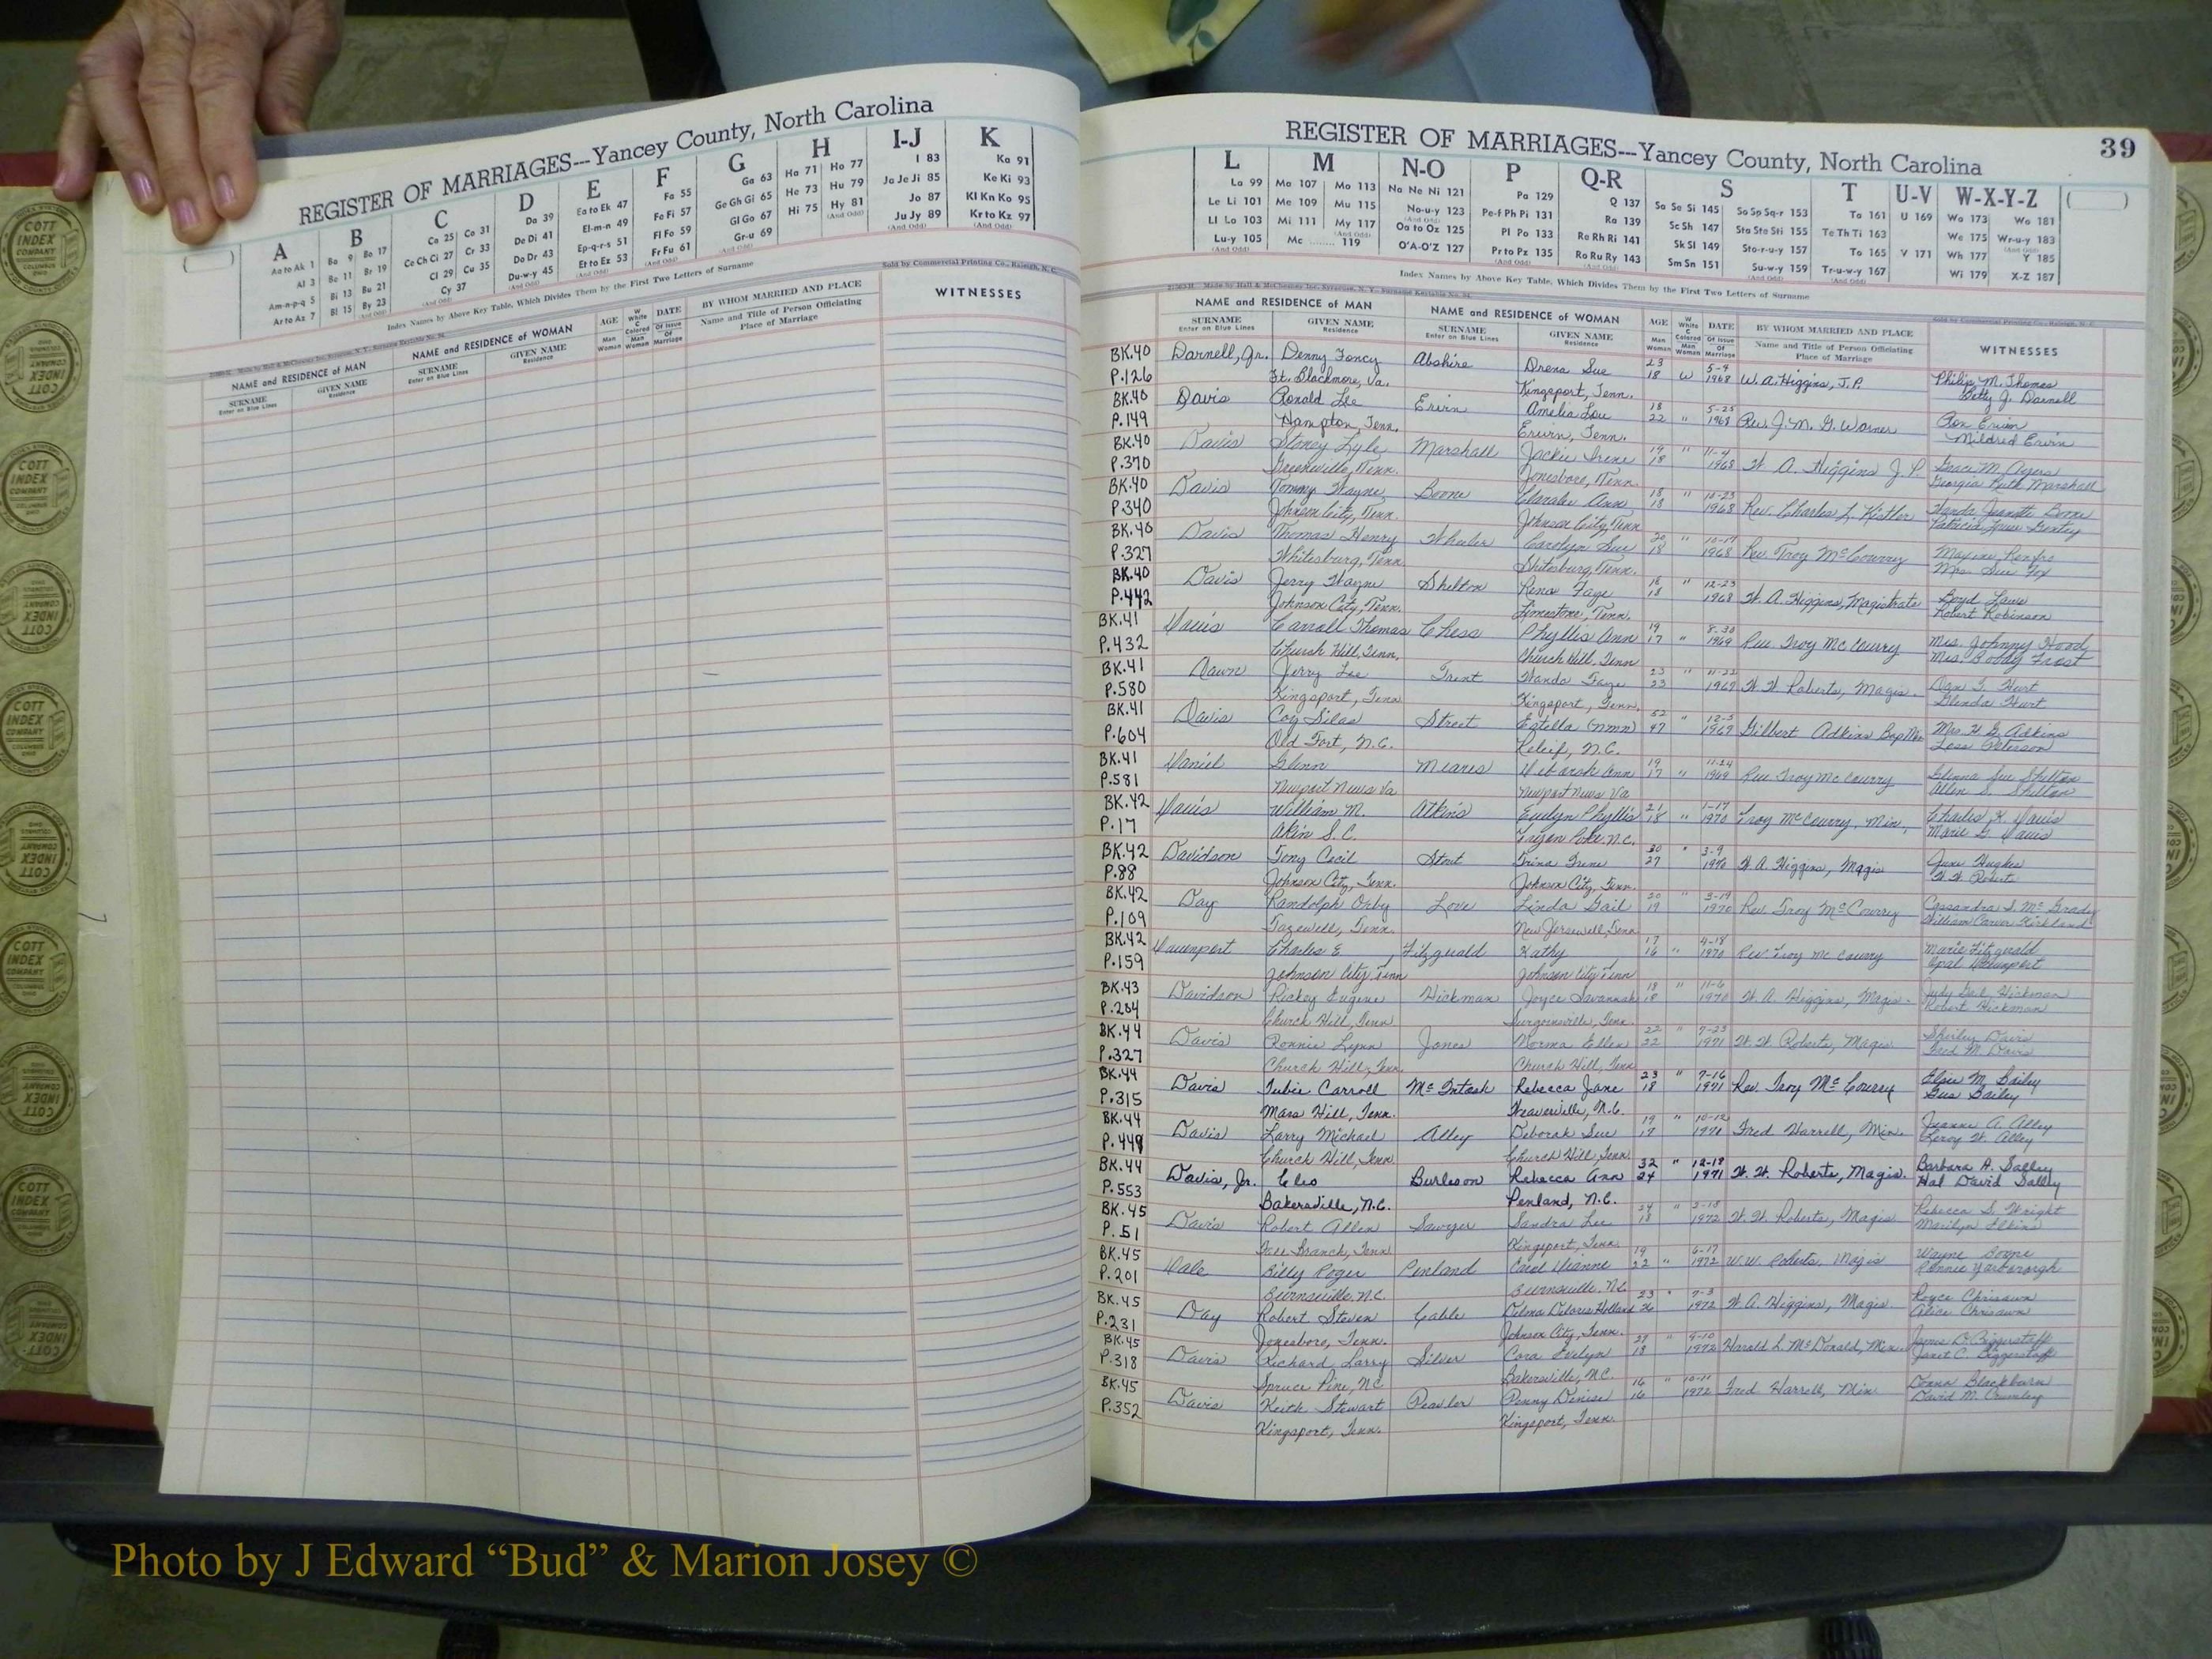 REGISTER OF MARRIAGES---Yancey County, North Carolina
A B C D E F G H I-J K
Aa to Ak 1
Al 3
Am-n-p-q 5
Ar to Az 7
Ba 9 Bo 17
Be 11 Br 19
Bi 13 Bu 21
Bl 15 By 23
Ca 25 Co 31
Ce Ch Ci 27 Cr 33
Cl 29 Cu 35
Cy 37
Da 39
De Di 41
Do Dr 43
Du-w-y 45
Ea to Ek 47
El-m-n 49
Ep-q-r-s 51
Et to Ez 53
Fa 55
Fe Fi 57
Fl Fo 59
Fr Fu 61
Ga 63
Ge Gh Gi 65
Gl Go 67
Gr-u 69
Ha 71 Ho 77
He 73 Hu 79
Hi 75 Hy 81
I 83
Ja Je Ji 85
Jo 87
Ju Jy 89
Ka 91
Ke Ki 93
Kl Kn Ko 95
Kr to Kz 97
Index Names by Above Key Table, Which Divides Them by the First Two Letters of Surname
Sold by Commercial Printing Co., Raleigh, N. C.
NAME and RESIDENCE OF MAN
SURNAME
Enter on Blue Lines
GIVEN NAME
Residence
NAME and RESIDENCE of WOMAN
SURNAME
Enter on Blue Lines
GIVEN NAME
Residence
AGE
Man
Woman
W White C Colored
Man
Woman
DATE
Of Issue
Of Marriage
BY WHOM MARRIED AND PLACE
Name and Title of Person Officiating
Place of Marriage
WITNESSES
REGISTER OF MARRIAGES---Yancey County, North Carolina
39
L M N-O P Q-R S T U-V W-X-Y-Z
La 99
Le Li 101
Ll Lo 103
Lu-y 105
Ma 107 Mo 113
Me 109 Mu 115
Mi 111 My 117
Mc 119
Na Ne Ni 121
No-u-y 123
Oa to Oz 125
O'A-O'Z 127
Pa 129
Pe-f Ph Pi 131
Pl Po 133
Pr to Pz 135
Q 137
Ra 139
Re Rh Ri 141
Ro Ru Ry 143
Sa Se Si 145 So Sp Sq-r 153
Sc Sh 147 Sta Ste Sti 155
Sk Sl 149 Sto-r-u-y 157
Sm Sn 151 Su-w-y 159
Ta 161
Te Th Ti 163
To 165
Tr-u-w-y 167
U 169
V 171
Wa 173 Wo 181
We 175 Wr-u-y 183
Wh 177 Y 185
Wi 179 X-Z 187
Index Names by Above Key Table, Which Divides Them by the First Two Letters of Surname
NAME and RESIDENCE OF MAN
SURNAME
Enter on Blue Lines
GIVEN NAME
Residence
NAME and RESIDENCE of WOMAN
SURNAME
Enter on Blue Lines
GIVEN NAME
Residence
AGE
Man
Woman
W White C Colored
Man
Woman
DATE
Of Issue
Of Marriage
BY WHOM MARRIED AND PLACE
Name and Title of Person Officiating
Place of Marriage
WITNESSES
BK.40 Darnell, Jr. Denny Abshire Drena Sue 23 5-4 Philip M. Thomas
P.126 Ft. Blackmore, Va. Kingsport, Tenn. 18 W 1968 W. A. Higgins, J.P. Betty J. Darnell
BK.40 Davis Ronald Lee Erwin Amelia Lou 18 5-25
P.149 Hampton, Tenn. Erwin, Tenn. 22 " 1968 Rev. J. M. G. Warner Mildred Erwin
BK.40 Davis Stoney Lyle Marshall Jackie Irene 19 " 11-4 Grace M. Ayers
P.370 Greeneville, Tenn. Jonesboro, Tenn. 18 1968 W. A. Higgins J P Georgia Ruth Marshall
BK.40 Davis Tommy Wayne Boone Ann 18 " 10-23
P.340 Johnson City, Tenn. Johnson City, Tenn 18 1968 Rev. Charles L. Kistler
BK.40 Davis Thomas Henry Wheeler Carolyn Sue 20 " 10-17
P.327 Whitesburg, Tenn Whitesburg, Tenn. 18 1968 Rev. Troy McCourry Mrs. Sue Fox
BK.40 Davis Jerry Wayne Shelton Rena Faye 18 " 12-23 Boyd Laws
P.442 Johnson City, Tenn. Limestone, Tenn. 18 1968 W. A. Higgins, Magistrate Robert Robinson
BK.41 Davis Carroll Thomas Chess Phyllis Ann 19 8-30 Mrs. Johnny Hood
P.432 Church Hill, Tenn. Church Hill, Tenn 17 " 1969 Rev Troy McCourry Mrs. Bobby Frost
BK.41 Dawn Jerry Lee Trent Wanda Faye 23 " 11-22
P.580 Kingsport, Tenn Kingsport, Tenn. 23 1969 W. W. Roberts, Magis. Glenda Hurt
BK.41 Davis Coy Silas Street Estella (nmn) 52 " 12-5 Mrs. W. G. Adkins
P.604 Old Fort, N.C. Releif, N.C. 47 1969 Gilbert Adkins Bap Min Peterson
BK.41 Daniel Glenn Meares Deborah Ann 19 11-24 Glenna Sue Shelton
P.581 Newport News Va Newport News Va 17 " 1969 Rev Troy McCourry Allen S. Shelton
BK.42 Davis William M. Atkins Evelyn Phyllis 21 1-17 Charles K. Davis
P.17 Akin S.C. N.C. 18 " 1970 Troy McCourry, Min, Marie G Davis
BK.42 Davidson Tony Cecil Stout Trina Irene 30 " 3-9 June Hughes
P.88 Johnson City, Tenn. Johnson City, Tenn. 27 1970 W. A. Higgins, Magis W. W. Roberts
BK.42 Day Randolph Orby Love Linda Gail 20 " 3-19 Cassandra S. McGrady
P.109 Tazewell, Tenn. New Tenn 19 1970 Rev. Troy McCourry William Carver Kirkland
BK.42 Davenport Charles E Fitzgerald Kathy 17 4-18 Marie Fitzgerald
P.159 Johnson City, Tenn Johnson City Tenn 16 " 1970 Rev. Troy McCourry Opal Davenport
BK.43 Davidson Rickey Eugene Hickman Joyce Savannah 18 " 11-6 Judy Gail Hickman
P.204 Church Hill, Tenn Surgoinsville, Tenn. 18 1970 W. A. Higgins, Magis. Robert Hickman
BK.44 Davis Ronnie Lynn Jones Norma Ellen 22 " 7-23 Shirley Davis
P.327 Church Hill, Tenn Church Hill, Tenn 22 1971 W. W. Roberts, Magis Fred M. Davis
BK.44 Davis Carroll McIntosh Rebecca Jane 23 " 7-16 Elsie M. Bailey
P.315 Mars Hill, Tenn. Weaverville, N.C. 18 1971 Rev. Troy McCourry Gus Bailey
BK.44 Davis Larry Michael Alley Deborah Sue 19 " 10-12 Jeanne A. Alley
P.449 Church Hill, Tenn. Church Hill, Tenn. 17 1971 Fred Harrell, Min. Leroy W. Alley
BK.44 Davis, Jr. Cleo Burleson Rebecca Ann 32 " 12-18 Barbara A. Salley
P.553 Bakersville, N.C. Penland, N.C. 24 1971 W. W. Roberts, Magis. Hal David Salley
BK.45 Davis Robert Allen Sawyer Sandra Lee 24 " 2-18 Rebecca S. Wright
P.51 Branch, Tenn Kingsport, Tenn. 18 1972 W. W. Roberts, Magis Marilyn Elkins
BK.45 Dale Billy Roger Penland Carol Dianne 19 6-17 Wayne Boone
P.201 Burnsville, N.C. Burnsville N.C. 22 " 1972 W. W. Roberts, Magis Ronnie Yarborough
BK.45 Day Robert Steven Cable Delma Deloris Holland 23 " 7-3 Royce Chrisawn
P.231 Jonesboro, Tenn. Johnson City, Tenn. 26 1972 W. A. Higgins, Magis. Alice Chrisawn
BK.45 Davis Richard Larry Silver Cora Evelyn 29 " 9-10 James D Biggerstaff
P.318 Spruce Pine, N.C. Bakersville, N.C. 18 1972 Harold L. McDonald, Min. Janet C. Biggerstaff
BK.45 Davis Keith Stewart Peavler Penny Denise 16 " 10-11 Donna Blackburn
P.352 Kingsport, Tenn. Kingsport, Tenn. 16 1972 Fred Harrell, Min David M. Crumley
COTT INDEX COMPANY COLUMBUS OHIO
Photo by J Edward “Bud” & Marion Josey ©